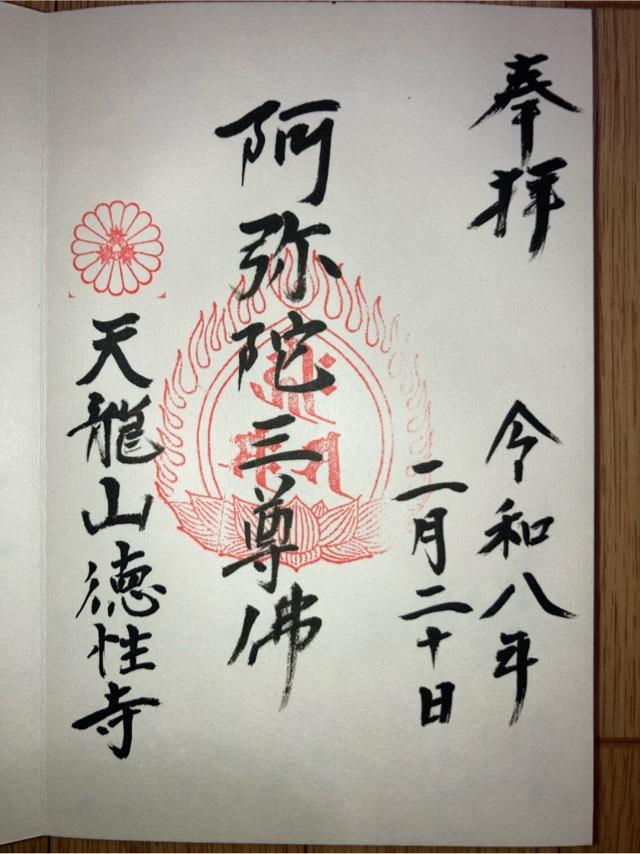 奉拝
令和八年
二月二十日
阿弥陀三尊佛
天龍山徳性寺